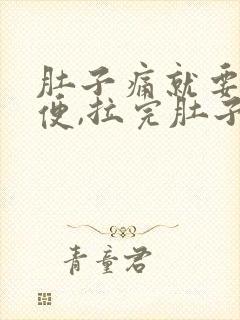 肚子痛就要
便,拉完肚子
青童君